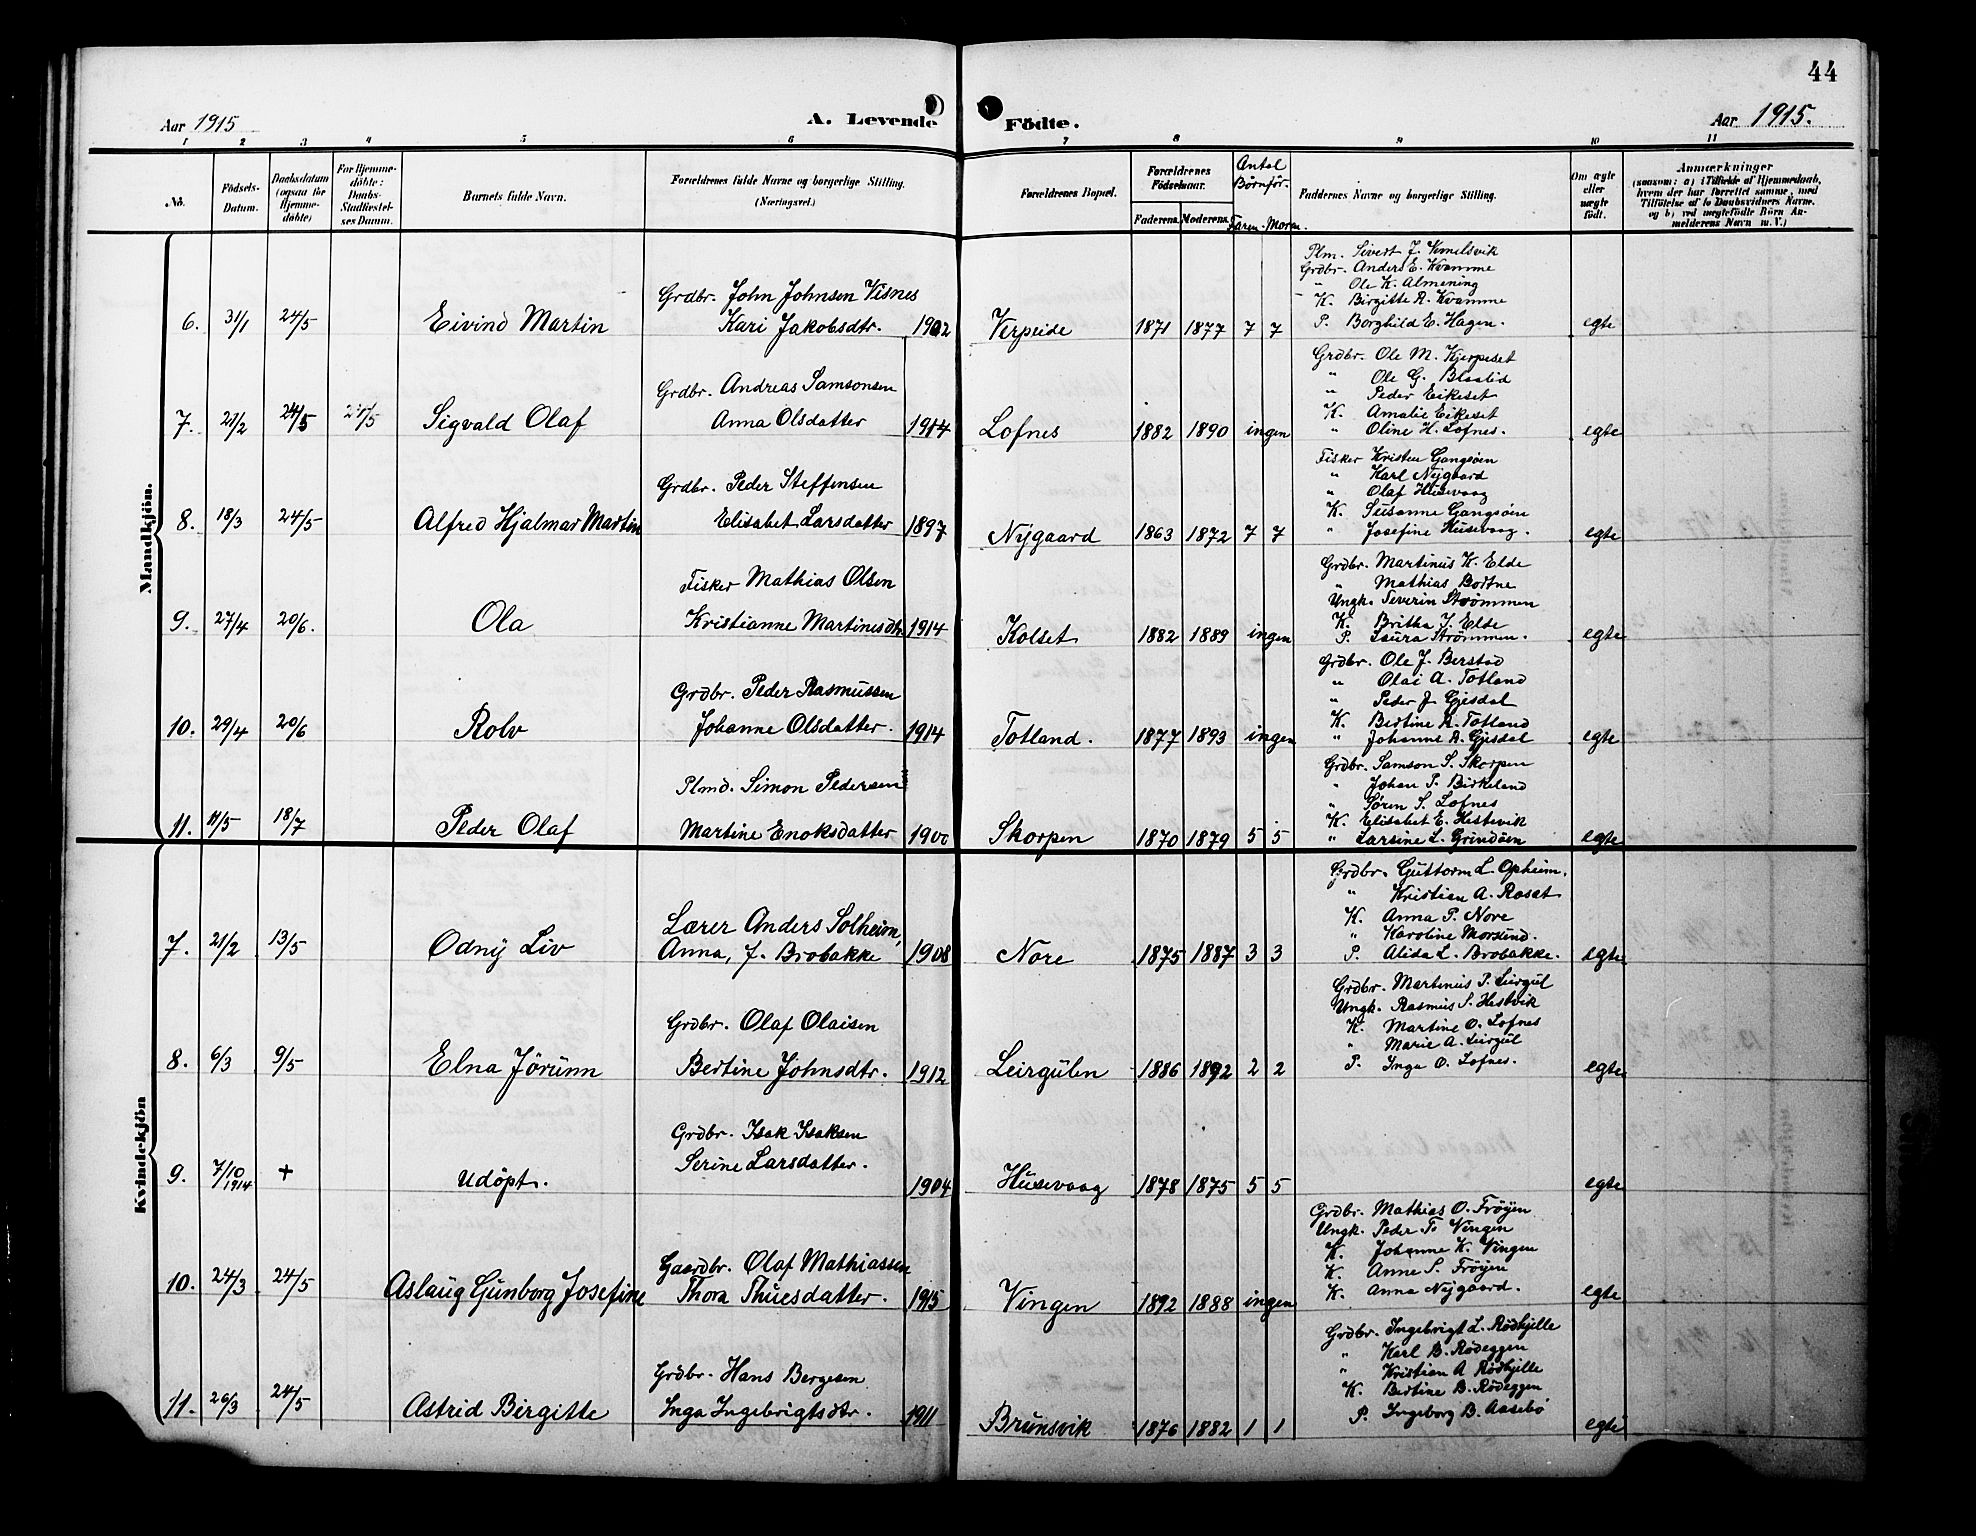 44
Aar 1915
A. Levende
Födte.
Aar 1915.
1 2 3 4 5 6 7 8 9 10 11
No.
Födsels-Datum.
Daabsdatum (ogsaa for Hjemme-döbte)
For Hjemme-döbte: Daabs-Stadfæstel-ses Datum.
Barnets fulde Navn.
Forældrenes fulde Navne og borgerlige Stilling.
(Næringsvei.)
Forældrenes Bopæl.
Forældrenes Födselsaar.
Faderens. Moderens.
Antal Børn før.
Faren. Moren.
Faddernes Navne og borgerlige Stilling.
Om ægte eller uægte födt.
Anmærkninger
(saasom: a) i Tilfælde af Hjemmedaab,
hvem der har forrettet samme, med
Tilföielse af to Daabsvidners Navne,
og b) ved uægtefödte Börn An-
melderens Navn m. V.)
Mandkjön.
Plm. Sivert J. Vemelsvik
Grdbr. Anders E. Kvamme
" Ole K. Almening
K. Birgitte R. Kvamme
Grdbr. John Johnsen Visnes
6. 31/1 24/5 Eivind Martin Kari Jakobsdtr. 1902 Verpeide 1871 1877 7 7 P. Borghild E. Hagen. egte
Grdbr. Ole M. Kjerpeset
" Ole G. Blaalid
Grdbr. Andreas Samsonsen " Peder Eikeset
K. Amalie Eikeset
7. 21/2 24/5 24/5 Sigvald Olaf Anna Olsdatter 1914 Lofnes 1882 1890 ingen " Oline H. Lofnes. egte
Fisker Kristen Gangsøen
" Karl Nygaard
Grdbr. Peder Steffensen " Olaf Husevaag
K. Susanne Gangsøen
8. 18/3 24/5 Alfred Hjalmar Martin Elisabet Larsdatter 1897 Nygaard 1863 1872 7 7 " Josefine Husevaag. egte
Grdbr. Martinus K. Elde
Fisker Mathias Olsen " Mathias Bortne
Ungk. Severin Strömmen
K. Britha J. Elde
9. 27/4 20/6. Ola Kristianne Martinesdtr. 1914 Kolset 1882 1889 ingen P. Laura Strömmen. egte
Grdbr. Ole J. Berstad
" Olai A. Totland
Grdbr. Peder Rasmussen " Peder J. Gjesdal
K. Bertine R. Totland
10. 29/4 20/6 Rolv Johanne Olsdatter. 1914 Totland. 1877 1893 ingen " Johanne R. Gjesdal egte
Grdbr. Samson S. Skorpen
Plmd. Simon Pedersen " Johan P. Birkeland
" Sören S. Lofnes
K. Elisabet E. Hestevik
11. 11/5 18/7 Peder Olaf Martine Enoksdatter 1900 Skorpen 1870 1879 5 5 " Larsine L. Grindöen egte
Kvindekjön
Grdbr. Guttorm L. Opheim.
" Kristian A. Roset
Lærer Anders Solheim, K. Anna P. Nore
" Karoline Morslund.
7. 21/2 13/5 Odny Liv Anna, J. Brobakke 1908 Nore 1875 1887 3 3 P. Alida L. Brobakke. egte
Grdbr. Martinus P. Leirgul
Ungk. Rasmus S. Hestvik
Grdbr. Olaf Olaisen K. Martine O. Lofnes
" Marie A. Leirgul
8. 6/3 9/5 Elna Jörunn Bertine Johnsdtr. 1912 Leirgulen 1886 1892 2 2 P. Inga O. Lofnes. egte
Grdbr. Isak Isaksen
Serine Larsdatter.
9. 7/10 1914 + Udöpt. 1904 Husevaag 1878 1875 5 5 egte
Grdbr. Mathias O. Fröyen
Ungk. Peder T. Vingen
Gaardbr. Olaf Mathiassen K. Johanne K. Vingen
K. Anne S. Fröyen
10. 24/3 24/5 Aslaug Gunborg Josefine Thora Thuesdatter. 1915 Vingen 1892 1888 ingen K. Anna Nygaard. egte
Grdbr. Ingebrigt L. Rödkjelle
" Karl B. Rödeggen
Grdbr. Hans Bergesen " Kristian A Rödkjelle
K. Bertine B. Rödeggen
11. 26/3 24/5 Astrid Birgitte Inga Ingebrigtsdtr. 1911 Brunsvik 1876 1882 1 1 P. Ingeborg B. Aasebö egte